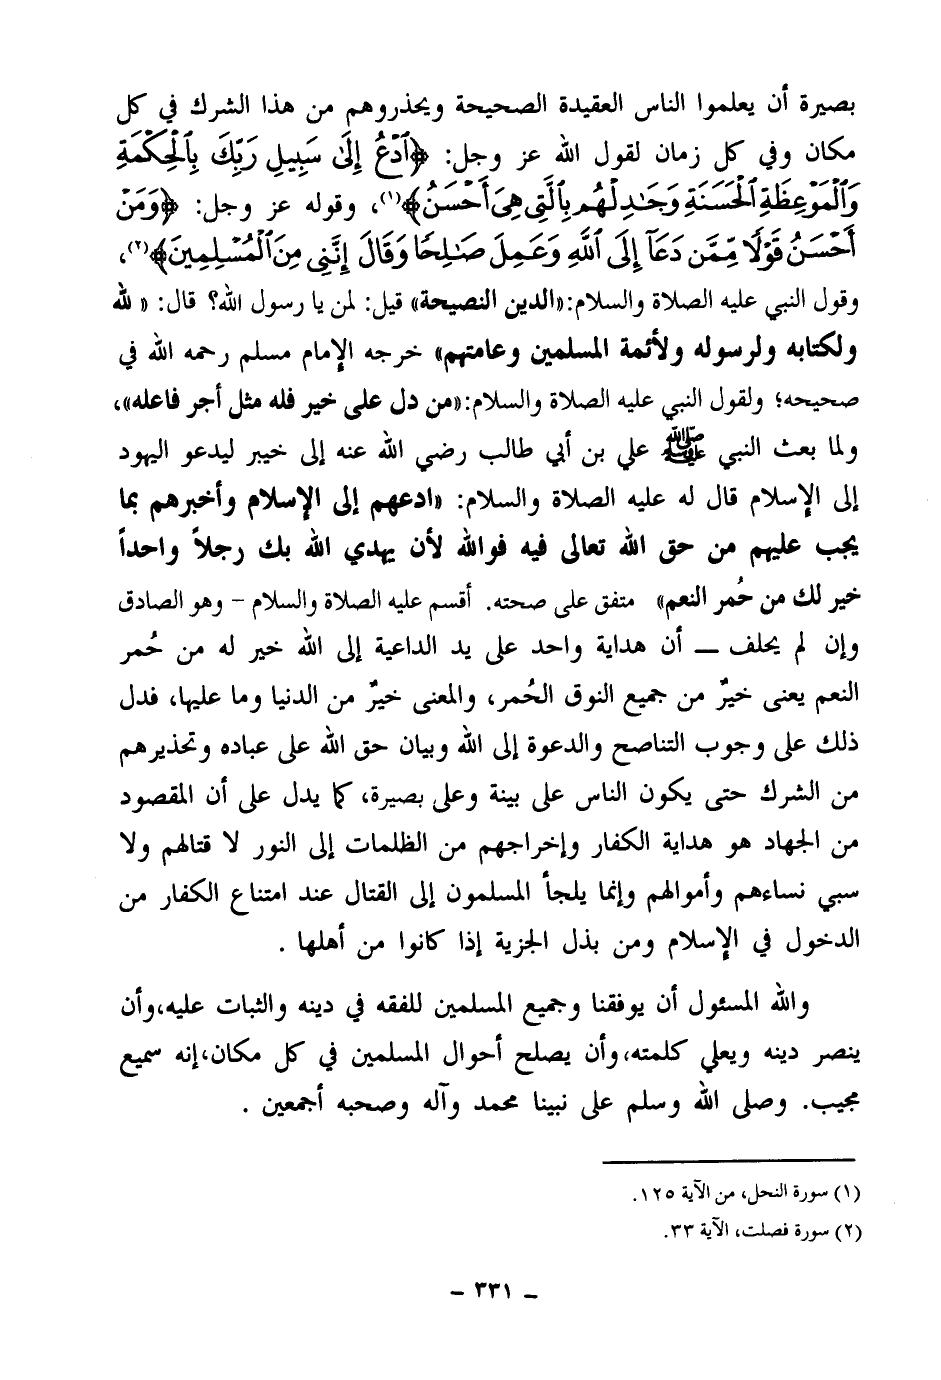 بصيرة أن يعلموا الناس العقيدة الصحيحة ويحذروهم من هذا الشرك في كل
مكان وفي كل زمان لقول الله عز وجل: ﴿ٱدْعُ إِلَىٰ سَبِيلِ رَبِّكَ بِٱلْحِكْمَةِ
وَٱلْمَوْعِظَةِ ٱلْحَسَنَةِ وَجَٰدِلْهُم بِٱلَّتِى هِىَ أَحْسَنُ﴾(١)، وقوله عز وجل: ﴿وَمَنْ
أَحْسَنُ قَوْلًا مِّمَّن دَعَآ إِلَى ٱللَّهِ وَعَمِلَ صَٰلِحًا وَقَالَ إِنَّنِى مِنَ ٱلْمُسْلِمِينَ﴾(٢)،
وقول النبي عليه الصلاة والسلام:«الدين النصيحة» قيل: لمن يا رسول الله؟ قال: « لله
ولكتابه ولرسوله ولأئمة المسلمين وعامتهم» خرجه الإمام مسلم رحمه الله في
صحيحه؛ ولقول النبي عليه الصلاة والسلام:«من دل على خير فله مثل أجر فاعله»،
ولما بعث النبي ﷺ علي بن أبي طالب رضي الله عنه إلى خيبر ليدعو اليهود
إلى الإسلام قال له عليه الصلاة والسلام: «ادعهم إلى الإسلام وأخبرهم بما
يجب عليهم من حق الله تعالى فيه فوالله لأن يهدي الله بك رجلاً واحداً
خير لك من حُمر النعم» متفق على صحته. أقسم عليه الصلاة والسلام – وهو الصادق
وإن لم يحلف – أن هداية واحد على يد الداعية إلى الله خير له من حُمر
النعم يعنى خيرٌ من جميع النوق الحُمر، والمعنى خيرٌ من الدنيا وما عليها، فدل
ذلك على وجوب التناصح والدعوة إلى الله وبيان حق الله على عباده وتحذيرهم
من الشرك حتى يكون الناس على بينة وعلى بصيرة، كما يدل على أن المقصود
من الجهاد هو هداية الكفار وإخراجهم من الظلمات إلى النور لا قتالهم ولا
سبي نساءهم وأموالهم وإنما يلجأ المسلمون إلى القتال عند امتناع الكفار من
الدخول في الإسلام ومن بذل الجزية إذا كانوا من أهلها .
والله المسئول أن يوفقنا وجميع المسلمين للفقه في دينه والثبات عليه،وأن
ينصر دينه ويعلي كلمته،وأن يصلح أحوال المسلمين في كل مكان،إنه سميع
مجيب. وصلى الله وسلم على نبينا محمد وآله وصحبه أجمعين .
(١) سورة النحل، من الآية ١٢٥.
(٢) سورة فصلت، الآية ٣٣.
– ٣٣١ –